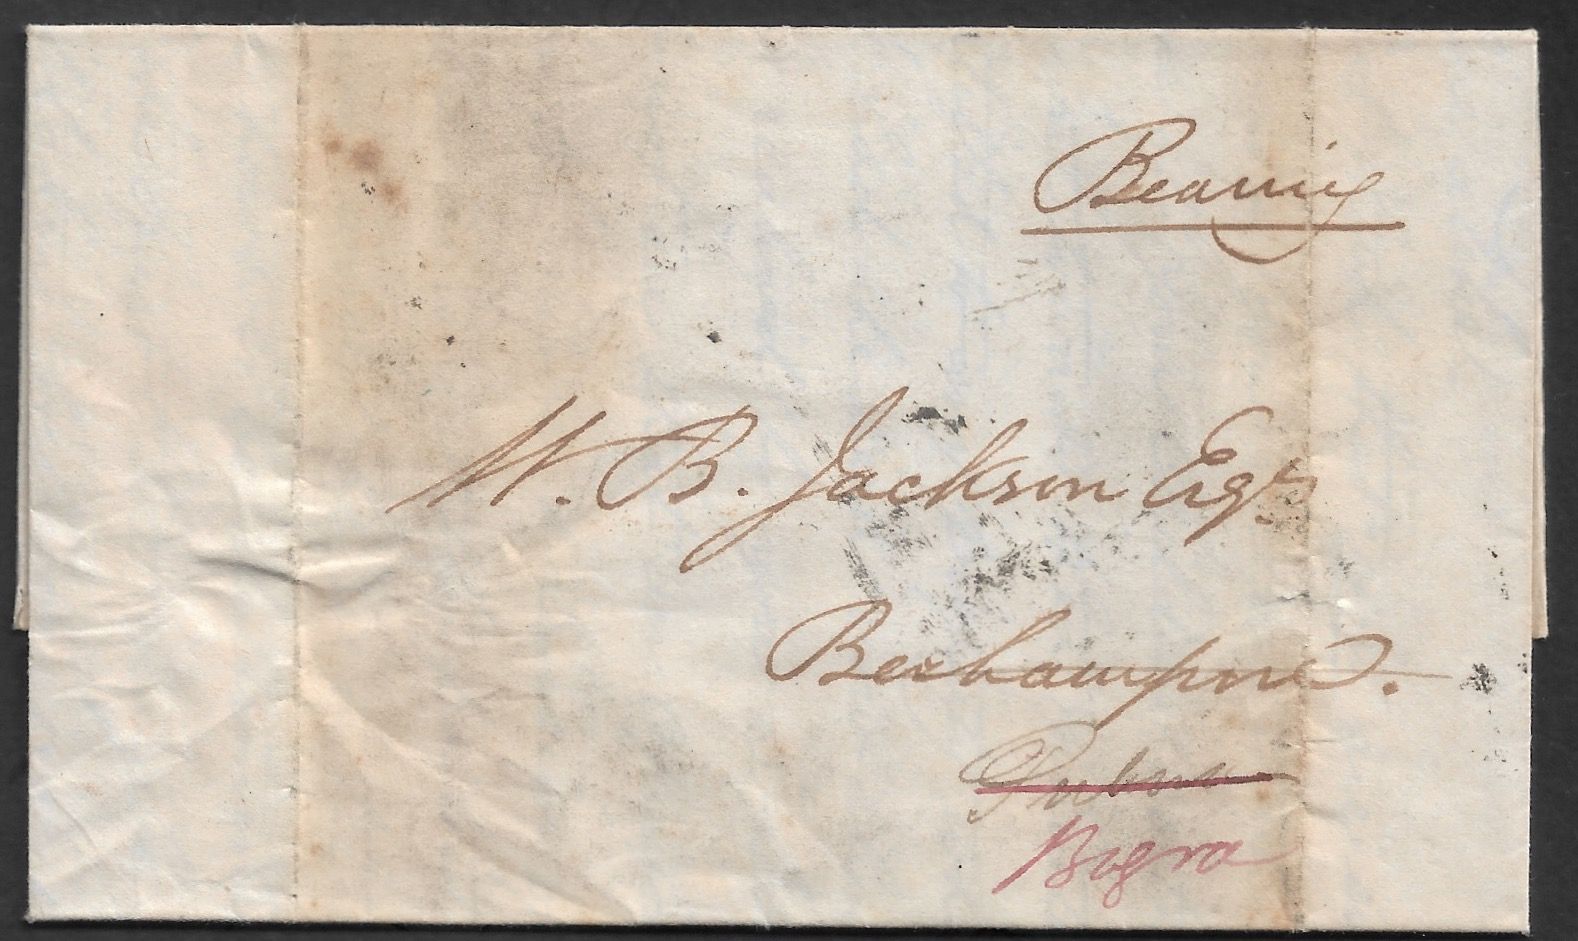 Bearing
W. B. Jackson Esqr.
Berhampore.
Pubna
Bogra